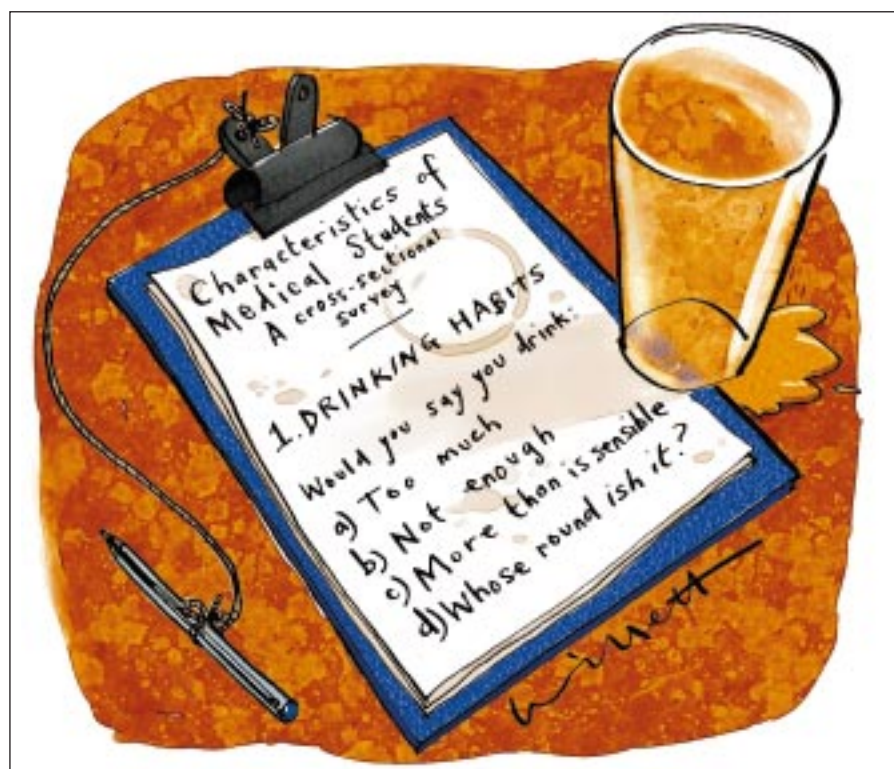 Characteristics of
Medical Students
A cross-sectional
survey
1. DRINKING HABITS
Would you say you drink:
a) Too much
b) Not enough
c) More than is sensible
d) Whose round ish it?
Willett